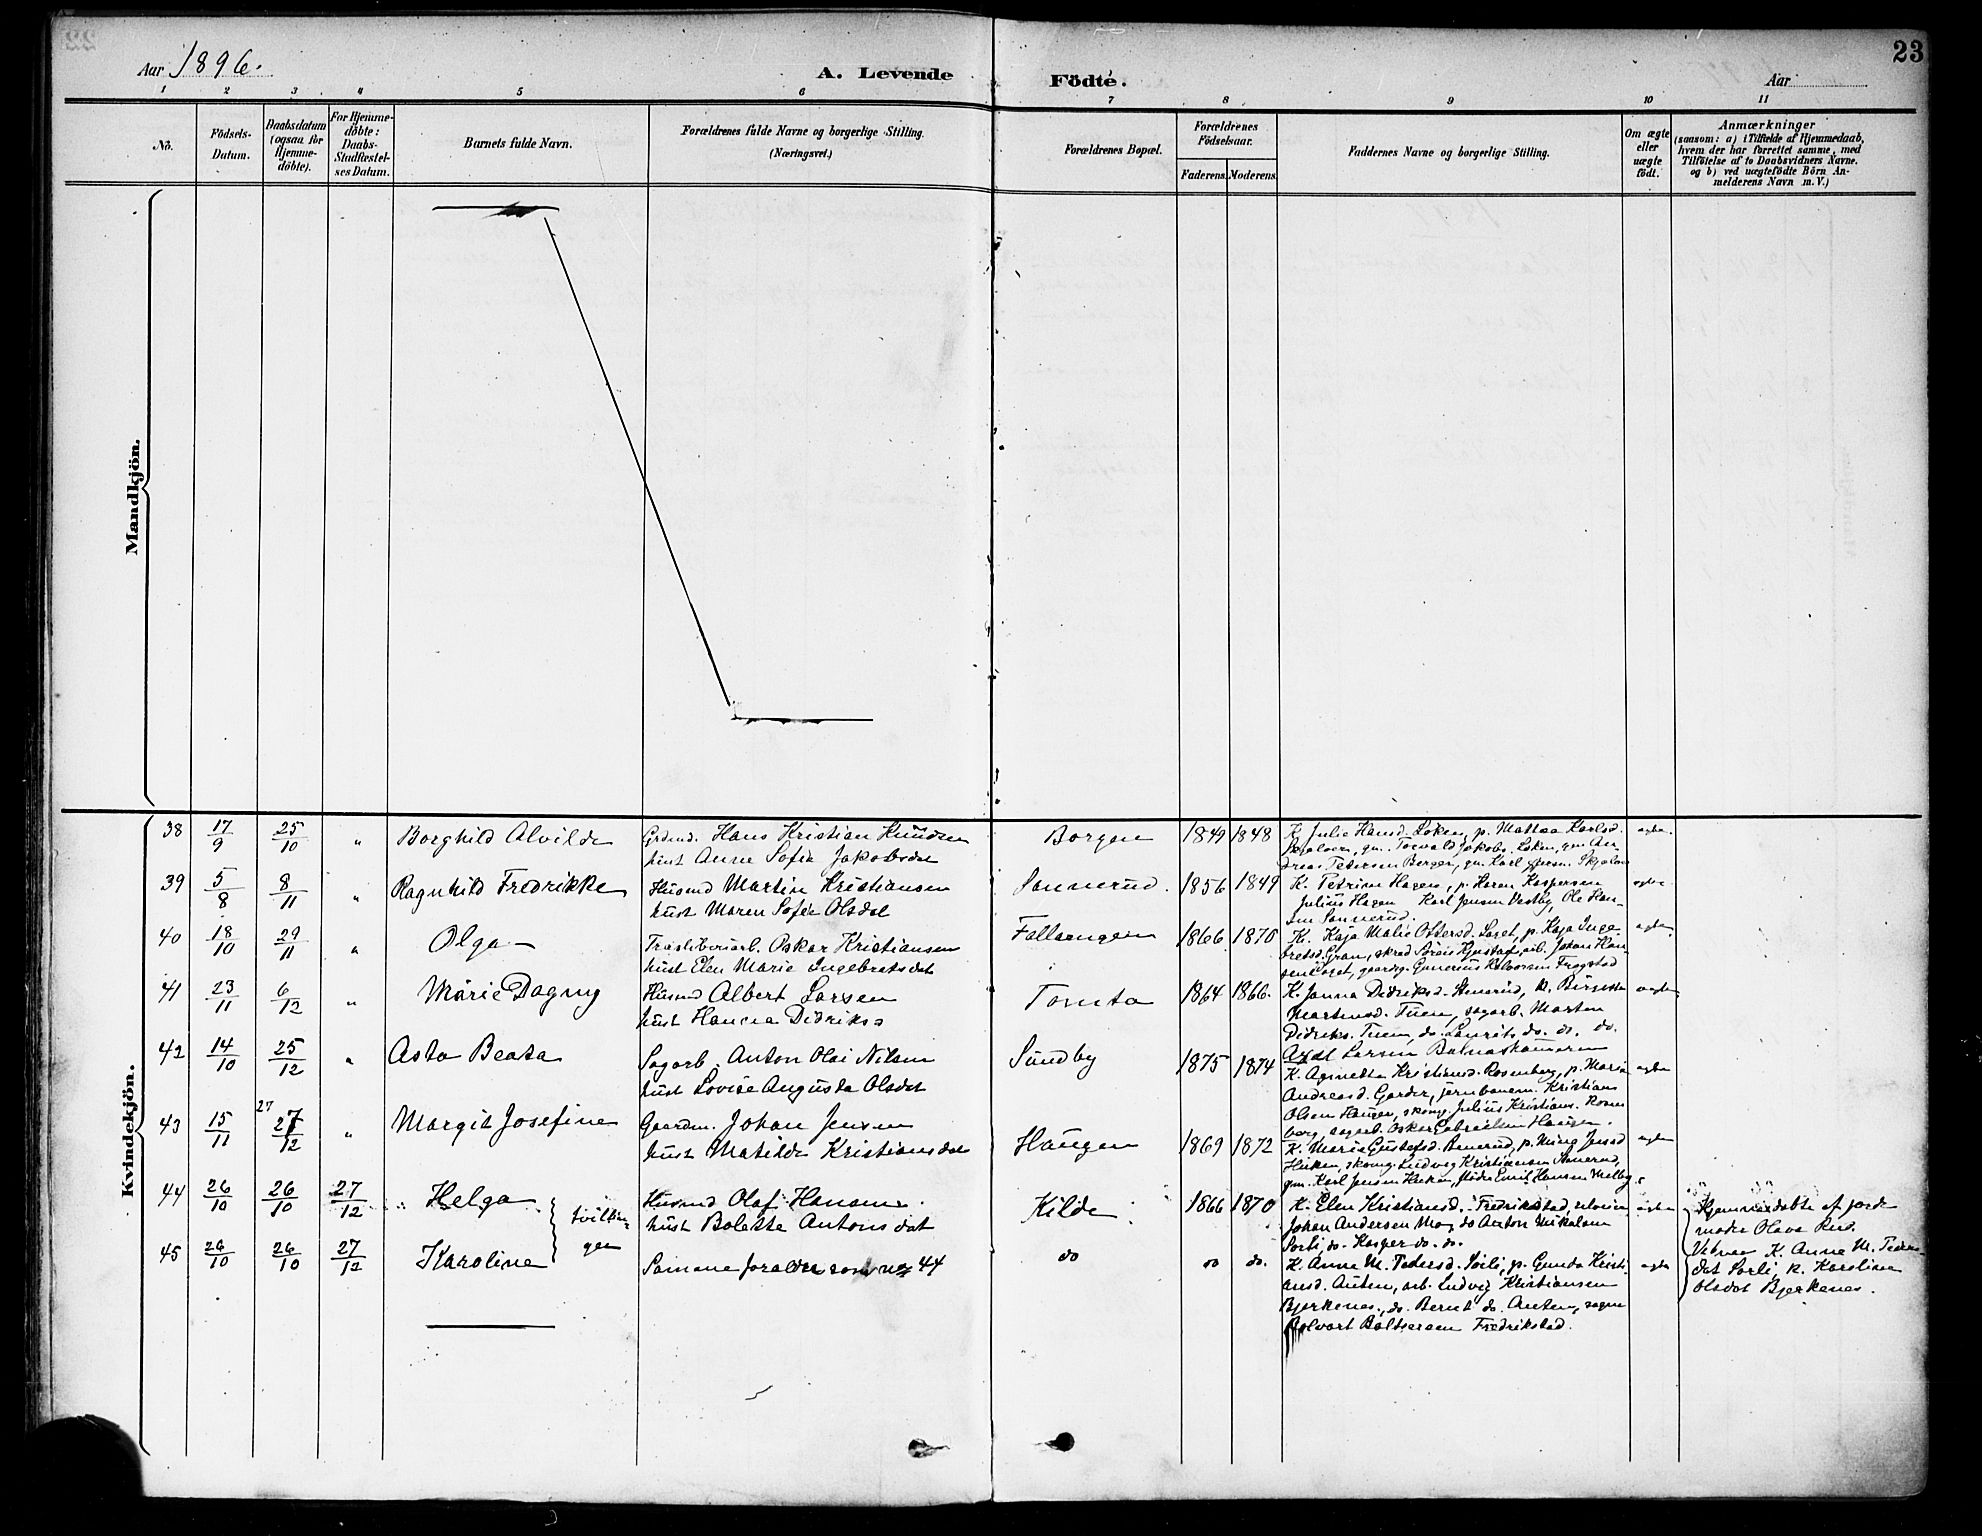 Aar 1896.
A. Levende
Födte.
Aar
23
1 2 3 4 5 6 7 8 9 10 11
No.
Födsels-
Datum.
Daabsdatum
(ogsaa for
Hjemme-
døbte).
For Hjemme-
døbte:
Daabs-
Stadfæstel-
ses Datum.
Barnets fulde Navn.
Forældrenes fulde Navne og borgerlige Stilling.
(Næringsvei.)
Forældrenes Bopæl.
Forældrenes
Födselsaar.
Faderens. Moderens.
Faddernes Navne og borgerlige Stilling.
Om ægte
eller
uægte
födt.
Anmærkninger
(saasom: a) i Tilfælde af Hjemmedaab,
hvem der har forrettet samme, med
Tilföielse af to Daabsvidners Navne,
og b) ved uægtefödte Börn An-
melderens Navn m. V.)
Mandkjön.
Kvindekjön.
38 17/9 25/10 " Borghild Alvilde
Hans Kristian Knudsen
hust Anne Sofie Jakobsdat
Borgen 1849 1848
K. Julie Hansd. Løken, p. Karlsd.
39 5/8 8/11 " Ragnhild Fredrikke
Husmd Martin Kristiansen
hust Maren Sofie Olsdat
Sannerud. 1856 1849
K. Petrine Hagen, p. Karen Kaspersen
Julius Hagen Karl Jensen Vestby, Ole Han-
sen Sannerud.
40 18/10 29/11 " Olga
Oskar Kristiansen
hust Elen Marie Ingebretsdat
1866 1870
K. Kaja Malie p. Kaja Inge-
bretsd. Gran, Johan Han-
sen Gunerius Halvorsen Frogstad
41 23/11 6/12 " Marie Dagny
Husmd Albert Larsen
hust Hanna Didriks
Tomta 1864 1866.
K. Janna Didriksd.
Martinsd. Tuen, sagarb. Morten
Didriks. Tuen, do. Laurits do. do. do.
Larsen
42 14/10 25/12 " Asta Beata
Sagarb. Anton Olai Nilsen
hust Lovise Augusta Olsdat
Sundby 1875 1874
K. Agnethe Kristiansd. Rosenberg, p. Maria
Andreasd. Garder, jernbanem. Kristian
Olsen Haugen, Julius Kristians. Rosen-
berg, sagarb. Oskar Haugen.
43 15/11 27 27/12 " Margit Josefine
Gaardm. Johan Jensen
hust Matilde Kristiansdat
Haugen 1869 1872
K. Maria Gustafsd. p. Mina Jensd
Ludvig Kristiansen
gm. Karl Jensen Emil Hansen Melby
44 26/10 26/10 27/12 Helga
tvillin-
ger
Husmd Olaf Hansen
hust Bolette Antonsdat
Kilde 1866 1870
K. Elen Kristiansd. Fredrikstad,
Johan Andersen Anton Nikolsen
Sorli, do. Kasper do. do.
Hjemmedøbte af jorde-
moder Olava Rud.
K. Anne M. Peders-
dat Sorli, K. Karoline
Olsdat Bjerkenes.
45 26/10 26/10 27/12 Karoline
Samme forældre som no 44
do do do.
K. Anne M. Pedersd. Sorli, p. Gunda Kristi-
ansd. Auten, arb. Ludvig Kristiansen
Bjerkenes, do. Bernt do. Auten,
Baltsersen Fredrikstad.